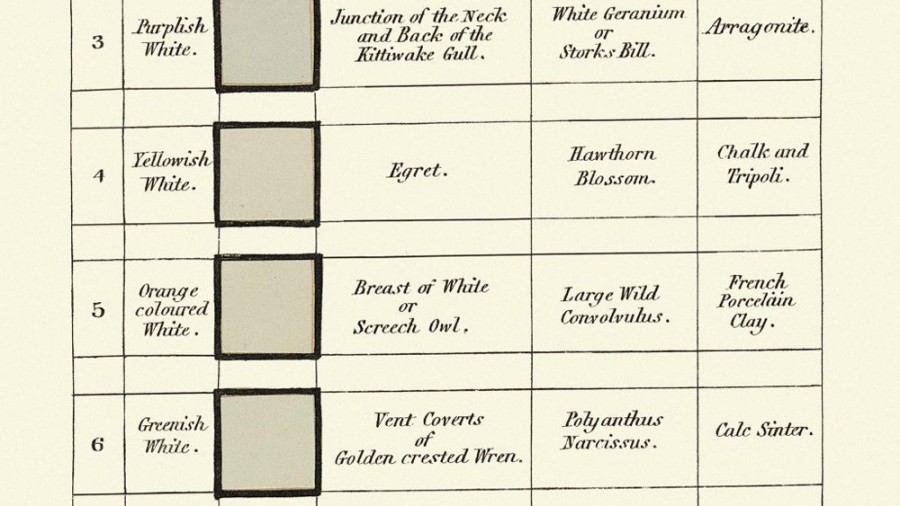 3
Purplish
White.
Junction of the Neck
and Back of the
Kittiwake Gull.
White Geranium
or
Storks Bill.
Arragonite.
4
Yellowish
White.
Egret.
Hawthorn
Blossom.
Chalk and
Tripoli.
5
Orange
coloured
White.
Breast of White
or
Screech Owl.
Large Wild
Convolvulus.
French
Porcelain
Clay.
6
Greenish
White.
Vent Coverts
of
Golden crested Wren.
Polyanthus
Narcissus.
Calc Sinter.